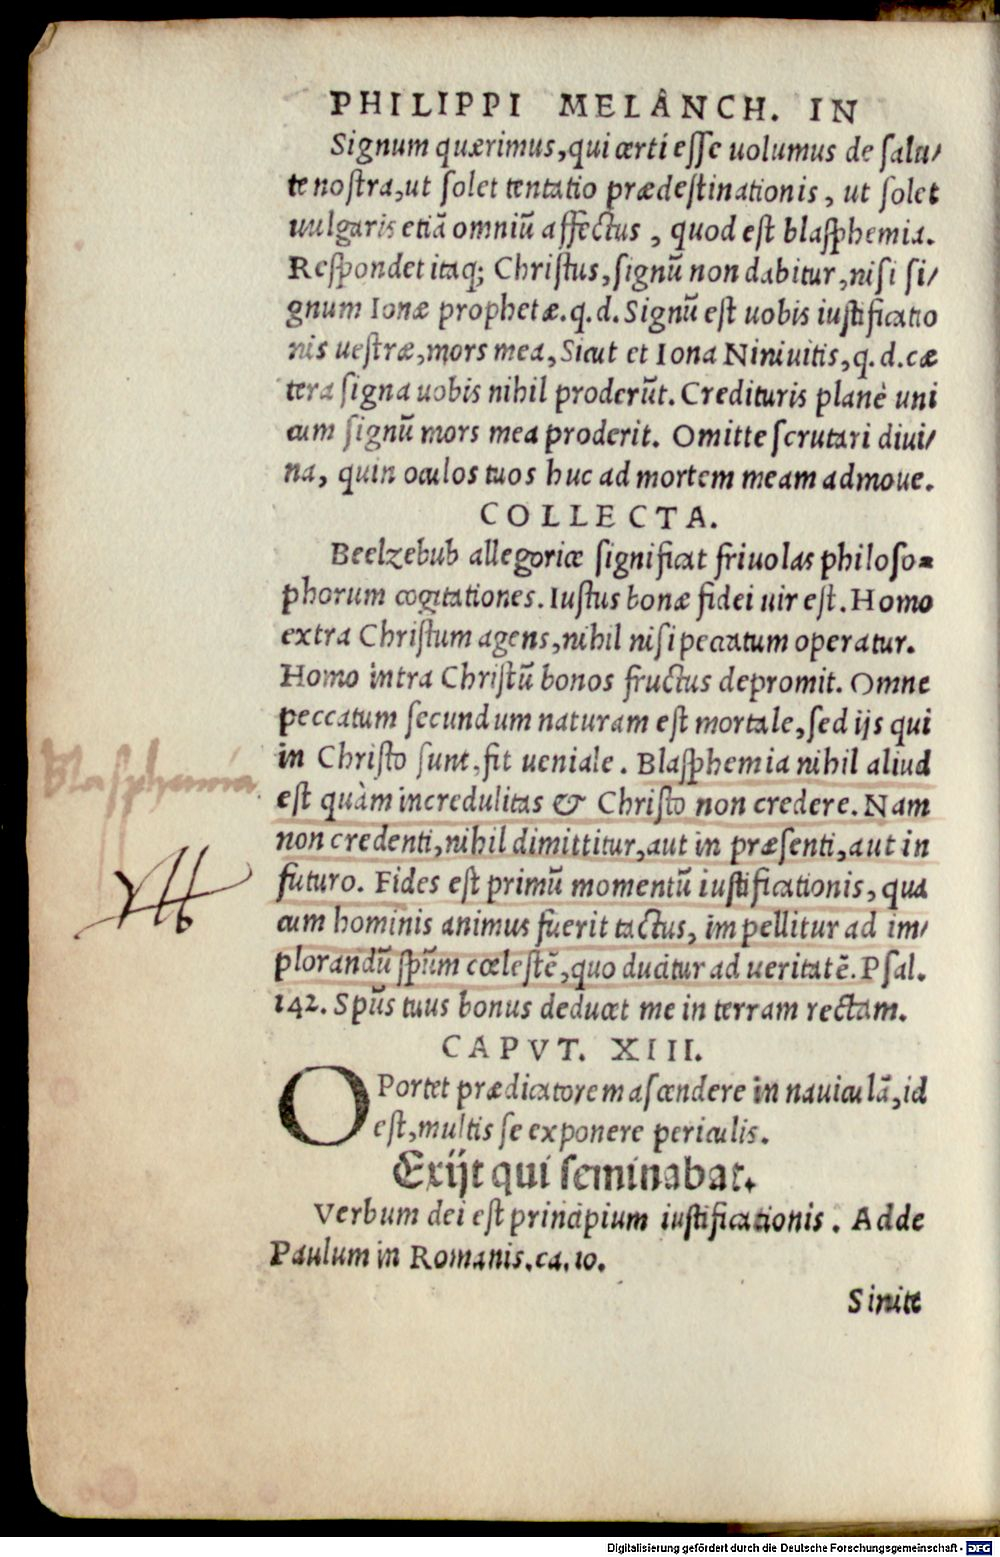 PHILIPPI MELANCH. IN
Signum quærimus, qui certi esse uolumus de salu/
te nostra, ut solet tentatio prædestinationis, ut solet
uulgaris etiā omniū affectus, quod est blasphemia.
Respondet itaq; Christus, signū non dabitur, nisi si/
gnum Ionæ prophetæ. q. d. Signū est uobis iustificatio
nis uestræ, mors mea, Sicut et Iona Niniuitis, q. d. cæ
tera signa uobis nihil proderūt. Credituris planè uni
cum signū mors mea proderit. Omitte scrutari diui/
na, quin oculos tuos huc ad mortem meam admoue.
COLLECTA.
Beelzebub allegorice significat friuolas philoso=
phorum cogitationes. Iustus bonæ fidei uir est. Homo
extra Christum agens, nihil nisi peccatum operatur.
Homo intra Christū bonos fructus depromit. Omne
peccatum secundum naturam est mortale, sed ijs qui
in Christo sunt, fit ueniale. Blasphemia nihil aliud
Blasphemia
est quàm incredulitas & Christo non credere. Nam
non credenti, nihil dimittitur, aut in præsenti, aut in
futuro. Fides est primū momentū iustificationis, qua
cum hominis animus fuerit tactus, impellitur ad im/
plorandū spūm cœlestē, quo ducitur ad ueritatē. Psal.
142. Spūs tuus bonus deducet me in terram rectam.
CAPVT. XIII.
OPortet prædicatorem ascendere in nauiculā, id
est, multis se exponere periculis.
Exijt qui seminabat.
Verbum dei est principium iustificationis. Adde
Paulum in Romanis. ca. 10.
Sinite
Digitalisierung gefördert durch die Deutsche Forschungsgemeinschaft - DFG